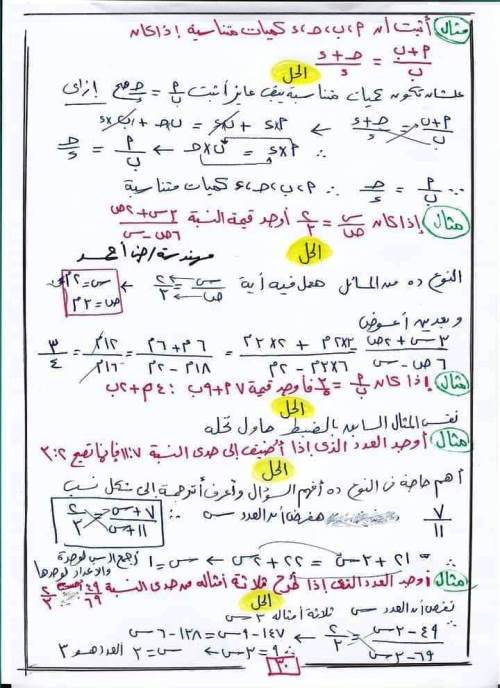 مثال أثبت أن أ، ب، ج، د كميات متناسبة إذا كان
(أ+ب)/ب = (ج+د)/د
الحل
علشان تكون كميات متناسبة يبقى عايز أثبت أ/ب = ج/د صح إزاى
(أ+ب)/ب = (ج+د)/د ← أ×د + ب×د = ب×ج + ب×د
∴ أ×د = ب×ج ∴ أ/ب = ج/د
∵ أ/ب = ج/د ∴ أ، ب، ج، د كميات متناسبة
مثال إذا كان س/ص = ٢/٣ أوجد قيمة النسبة (٣س+٢ص)/(٦ص-س)
الحل
مهندسة/
النوع ده من المسائل هعمل فيه أية س/ص = ٢/٣ ← س=٢م، ص=٣م
وبعدين أعوض
(٣س+٢ص)/(٦ص-س) = (٣×٢م + ٢×٣م)/(٦×٣م - ٢م) = (٦م+٦م)/(١٨م-٢م) = ١٢م/١٦م = ٣/٤
مثال إذا كان أ/ب = ٣/٥ فأوجد قيمة ٧أ+٩ب : ٤أ+٢ب
الحل
نفس المثال السابق بالضبط حاول تحله
مثال أوجد العدد الذى إذا أضيف إلى حدى النسبة ٧:١١ فإنها تصبح ٢:٣
الحل
أهم حاجة فى النوع ده أفهم السؤال وأعرف أترجمة إلى شكل نسب
٧/١١ هفرض أن العدد س ∴ (٧+س)/(١١+س) = ٢/٣
∴ ٢١+٣س = ٢٢+٢س ← س=١ أجمع السين لوحدة والأعداد لوحدها
مثال أوجد العدد الذى إذا طرح ثلاثة أمثاله من حدى النسبة ٤٩/٦٩ أصبحت ٢/٣
الحل
نفرض أن العدد س ثلاثة أمثاله ٣س
(٤٩-٣س)/(٦٩-٣س) = ٢/٣ ← ١٤٧-٩س = ١٣٨-٦س
∴ ٩=٣س ← س=٣ العدد هو ٣
٣٠